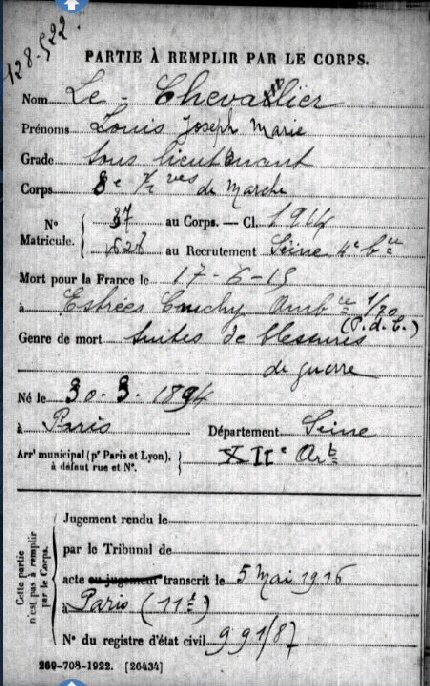 128.522.
PARTIE À REMPLIR PAR LE CORPS.
Nom Le - Chevallier
Prénoms Louis Joseph Marie
Grade Sous lieutenant
Corps 8e Zves de Marche
No Matricule. 37 au Corps. — Cl. 1914
au Recrutement Seine 4e bau
Mort pour la France le 17-6-15
à Estrées Cauchy Ambce 1/20
(P.d.C.)
Genre de mort Suites de blessures
de guerre
Né le 30 - 3 - 1894
à Paris Département Seine
Arrt municipal (pr Paris et Lyon), à défaut rue et No. XIe Art
Cette partie n'est pas à remplir par le Corps.
Jugement rendu le
par le Tribunal de
acte ou jugement transcrit le 5 Mai 1916
à Paris (11e)
No du registre d'état civil 991/87
269-708-1922. [26434]